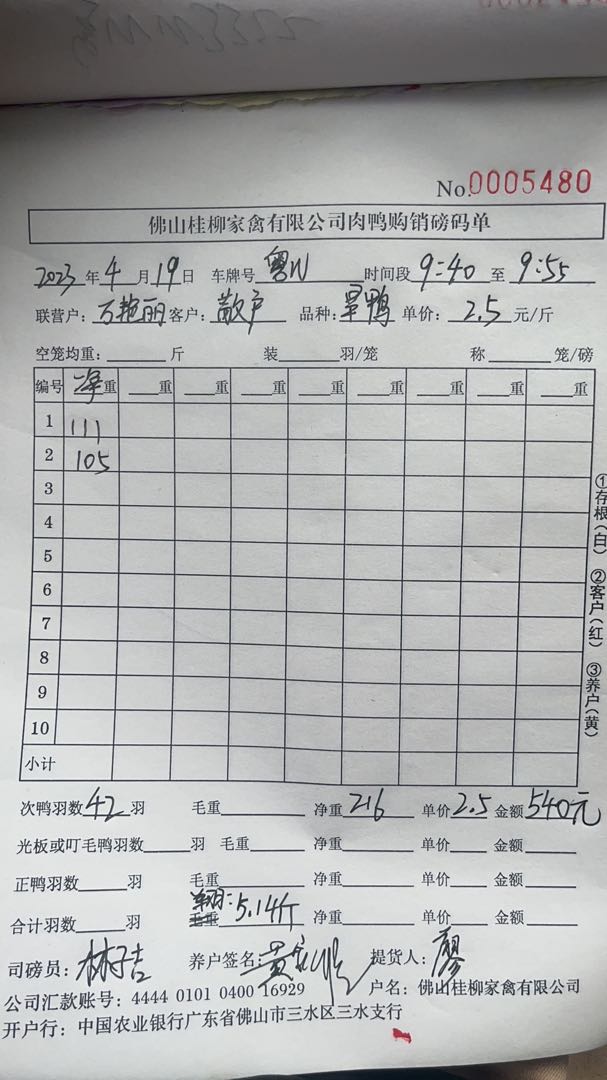 No.0005480
佛山桂柳家禽有限公司肉鸭购销磅码单
2023年4月19日 车牌号 粤W 时间段 9:40 至 9:55
联营户：万艳丽 客户：散户 品种：旱鸭 单价：2.5 元/斤
空笼均重：____斤 装____羽/笼 称____笼/磅
编号 净重 __重 __重 __重 __重 __重 __重 __重
1 111
2 105
3
4
5
6
7
8
9
10
小计
①存根（白） ②客户（红） ③养户（黄）
次鸭羽数 42 羽 毛重____ 净重 216 单价 2.5 金额 540元
光板或叮毛鸭羽数____羽 毛重____ 净重____ 单价____ 金额____
正鸭羽数____羽 毛重____ 净重____ 单价____ 金额____
合计羽数____羽 5.14斤 净重____ 单价____ 金额____
司磅员：林子吉 养户签名：黄 提货人：廖
公司汇款账号：4444 0101 0400 16929 户名：佛山桂柳家禽有限公司
开户行：中国农业银行广东省佛山市三水区三水支行